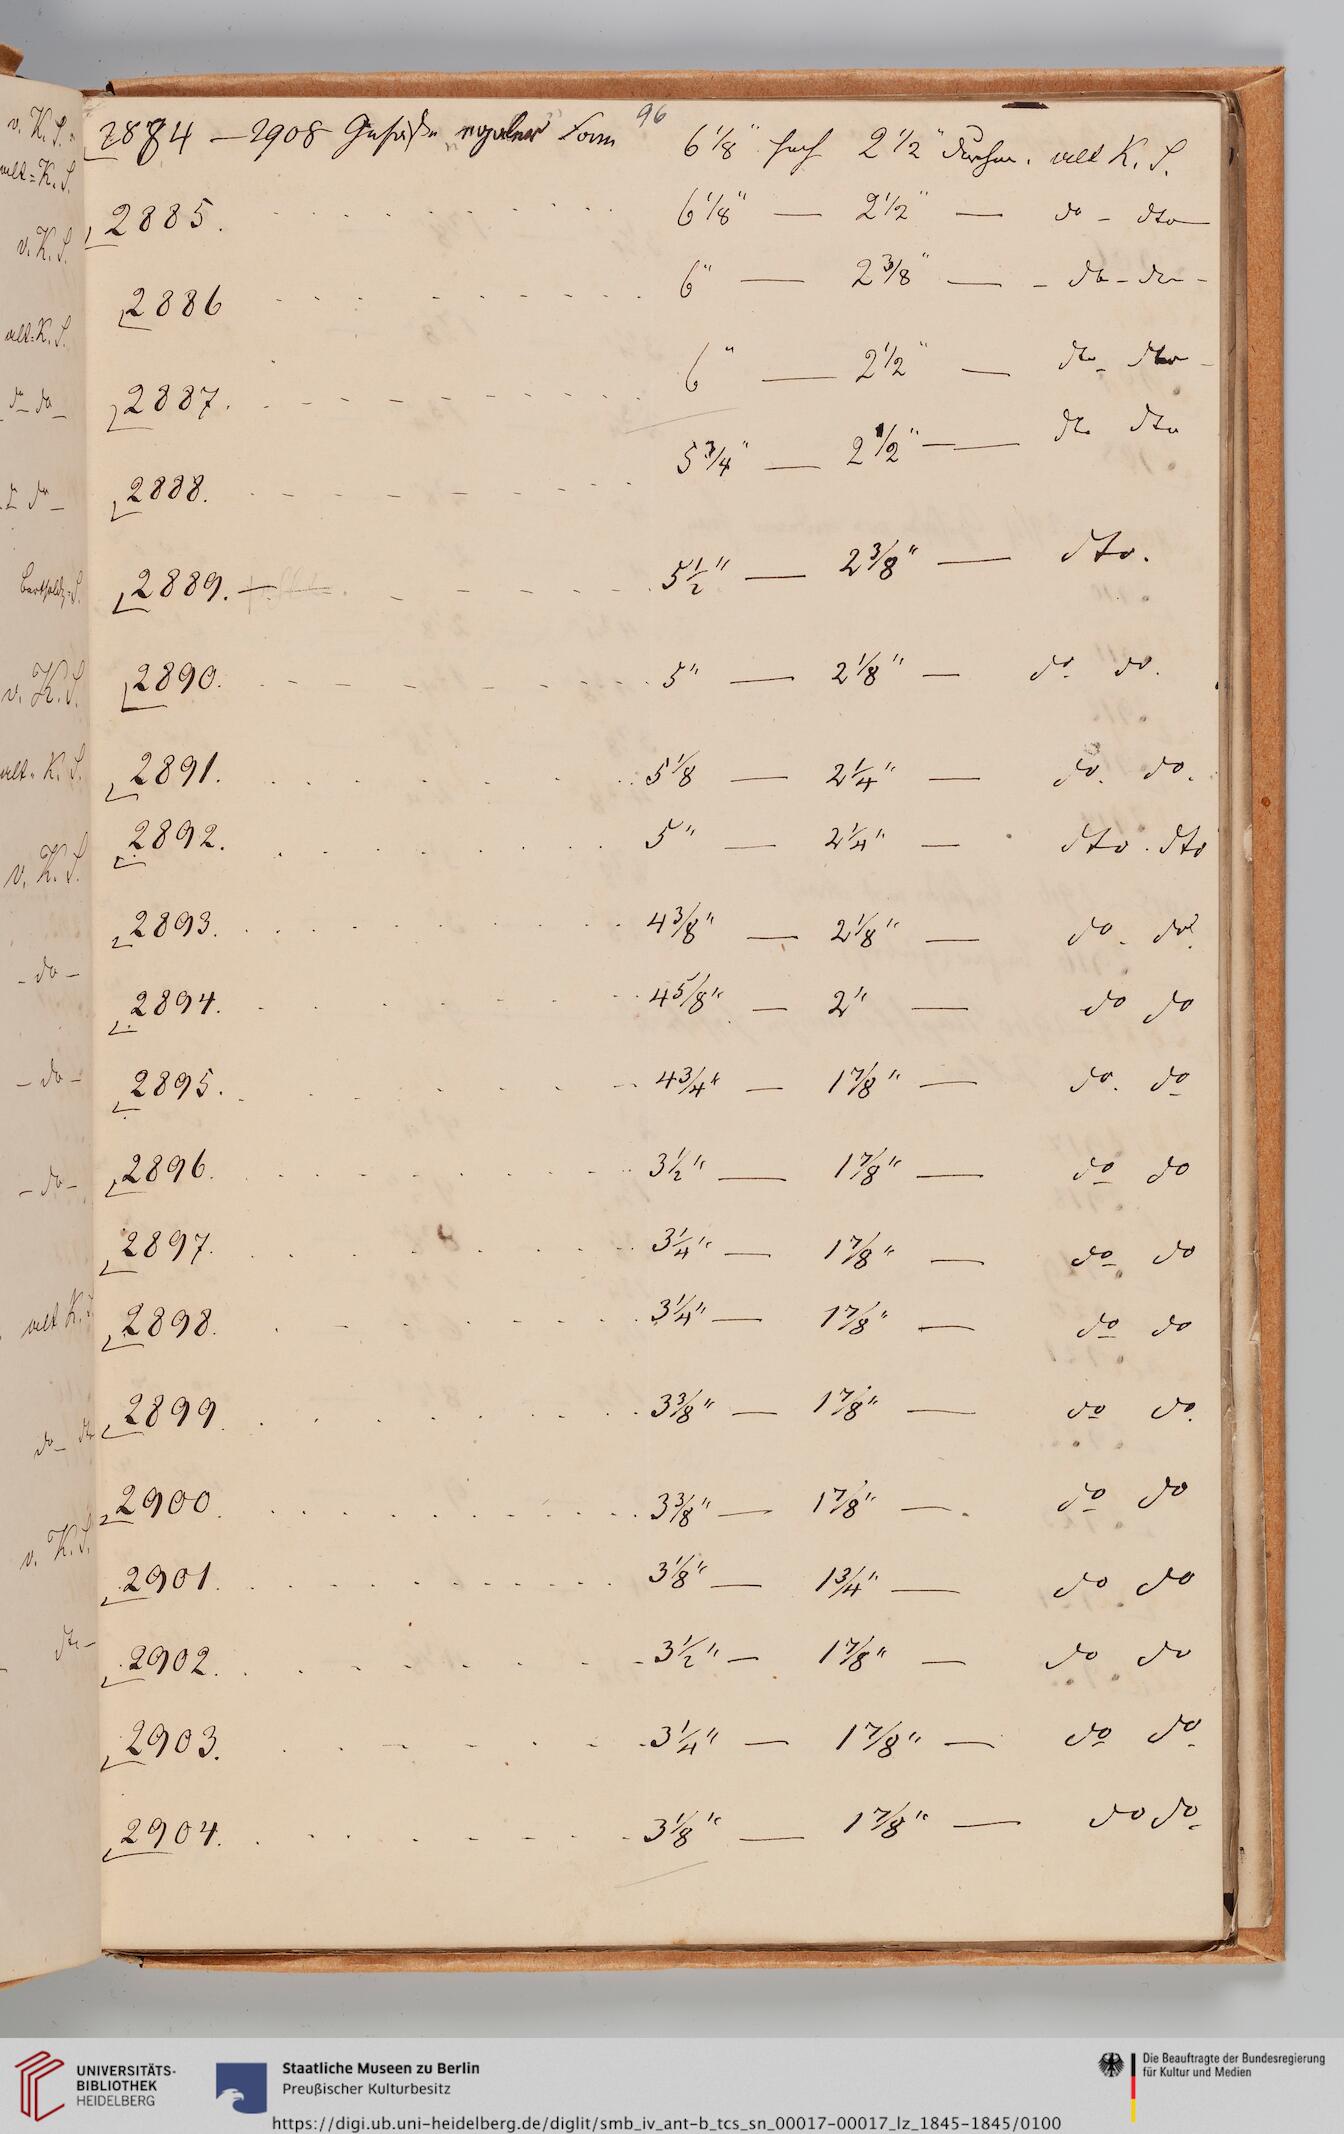 96
2884 – 2908 Gefäße regulaer Form 6 1/8" hoch 2 1/2" Durchm. alt K. S.
2885. 6 1/8" — 2 1/2" — do – dto —
2886 6" — 2 3/8" — – do – do –
2887. 6" — 2 1/2" — dto – dto –
2888. 5 3/4" — 2 1/2" — dto dto
2889. 5 1/2" — 2 3/8" — dto.
2890. 5" — 2 1/8" — do. do.
2891. 5 1/8 — 2 1/4" — do. do.
2892. 5" — 2 1/4" — dto. dto
2893. 4 3/8" — 2 1/8" — do. do.
2894. 4 5/8" — 2" — do do
2895. 4 3/4" — 1 7/8" — do. do
2896. 3 1/2" — 1 7/8" — do do
2897. 3 1/4" — 1 7/8" — do do
2898. 3 1/4" — 1 7/8" — do do
2899. 3 3/8" — 1 7/8" — do do.
2900. 3 3/8" — 1 7/8" — do do
2901. 3 1/8" — 1 3/4" — do do
2902. 3 1/2" — 1 7/8" — do do
2903. 3 1/4" — 1 7/8" — do do
2904. 3 1/8" — 1 7/8" — do do
v. K. S.
alt=K. S.
v. K. S.
alt=K. S.
do – do –
do –
v. K. S.
alt. K. S.
v. K. S.
– do –
– do –
– do –
alt K. S.
do – dto
v. K. S.
dto –
UNIVERSITÄTS-
BIBLIOTHEK
HEIDELBERG
Staatliche Museen zu Berlin
Preußischer Kulturbesitz
Die Beauftragte der Bundesregierung
für Kultur und Medien
https://digi.ub.uni-heidelberg.de/diglit/smb_iv_ant-b_tcs_sn_00017-00017_lz_1845-1845/0100